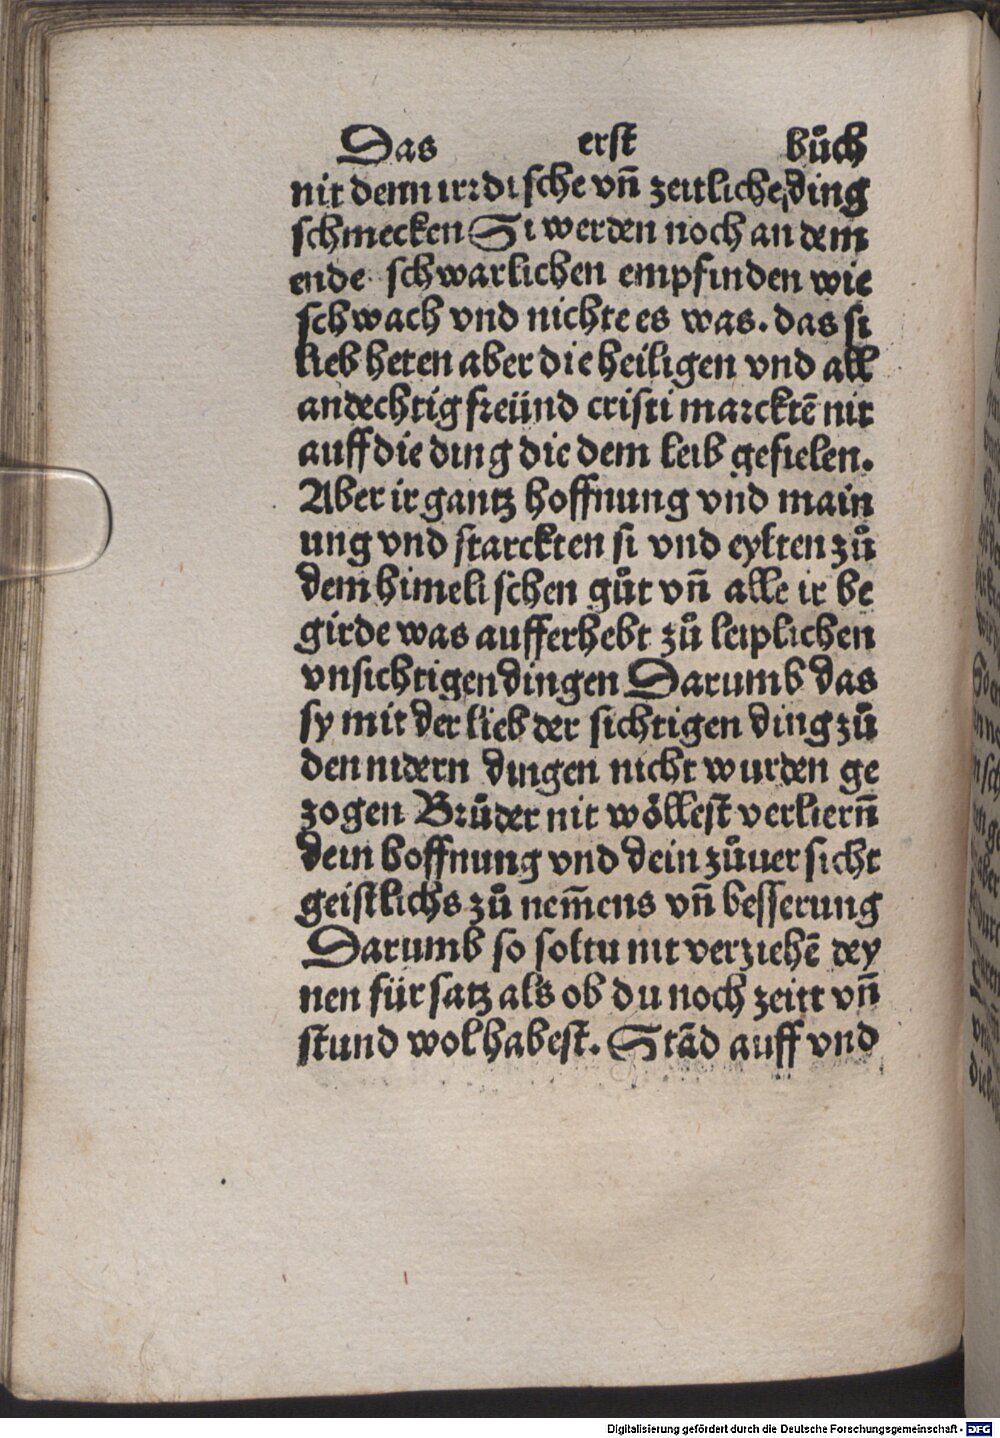 Das erst bůch
nit denn irꝛdische vñ zeitliche ding
schmecken Si werden noch an dem
ende schwarlichen empfinden wie
schwach vnd nichte es was. das si
lieb heten aber die heiligen vnd all
andechtig freünd cristi marcktē nit
auff die ding die dem leib gefielen.
Aber ir gantz hoffnung vnd main
ung vnd starckten si vnd eylten zů
dem himelischen gůt vñ alle ir be
girde was aufferhebt zů leiplichen
vnsichtigen dingen Darumb das
sy mit der lieb der sichtigen ding zů
den nidern dingen nicht wurden ge
zogen Brůder nit wöllest verlierñ
dein hoffnung vnd dein zůuersicht
geistlichs zů nem̃ens vñ besserung
Darumb so soltu nit verziehē dey
nen für satz als ob du noch zeitt vñ
stund wol habest. Stād auff vnd
Digitalisierung gefördert durch die Deutsche Forschungsgemeinschaft - DFG